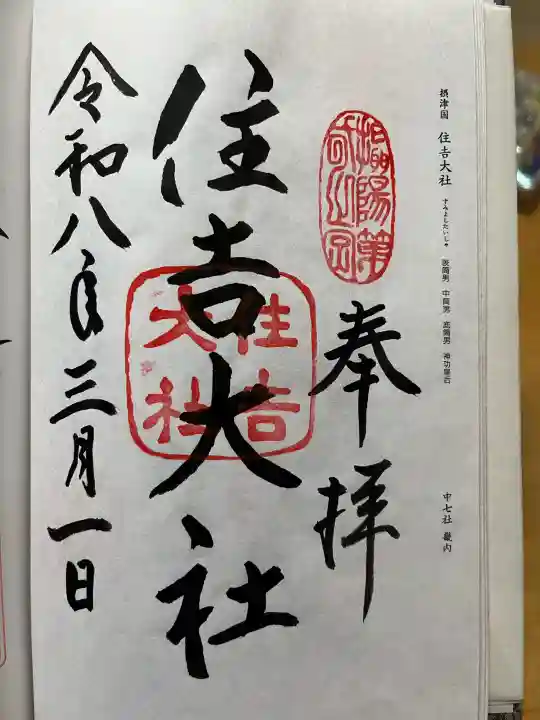 摂津国 住吉大社 すみよしたいしゃ 表筒男 中筒男 底筒男 神功皇后
中七社 畿内
奉拝
住吉大社
住吉大社
令和八年三月一日